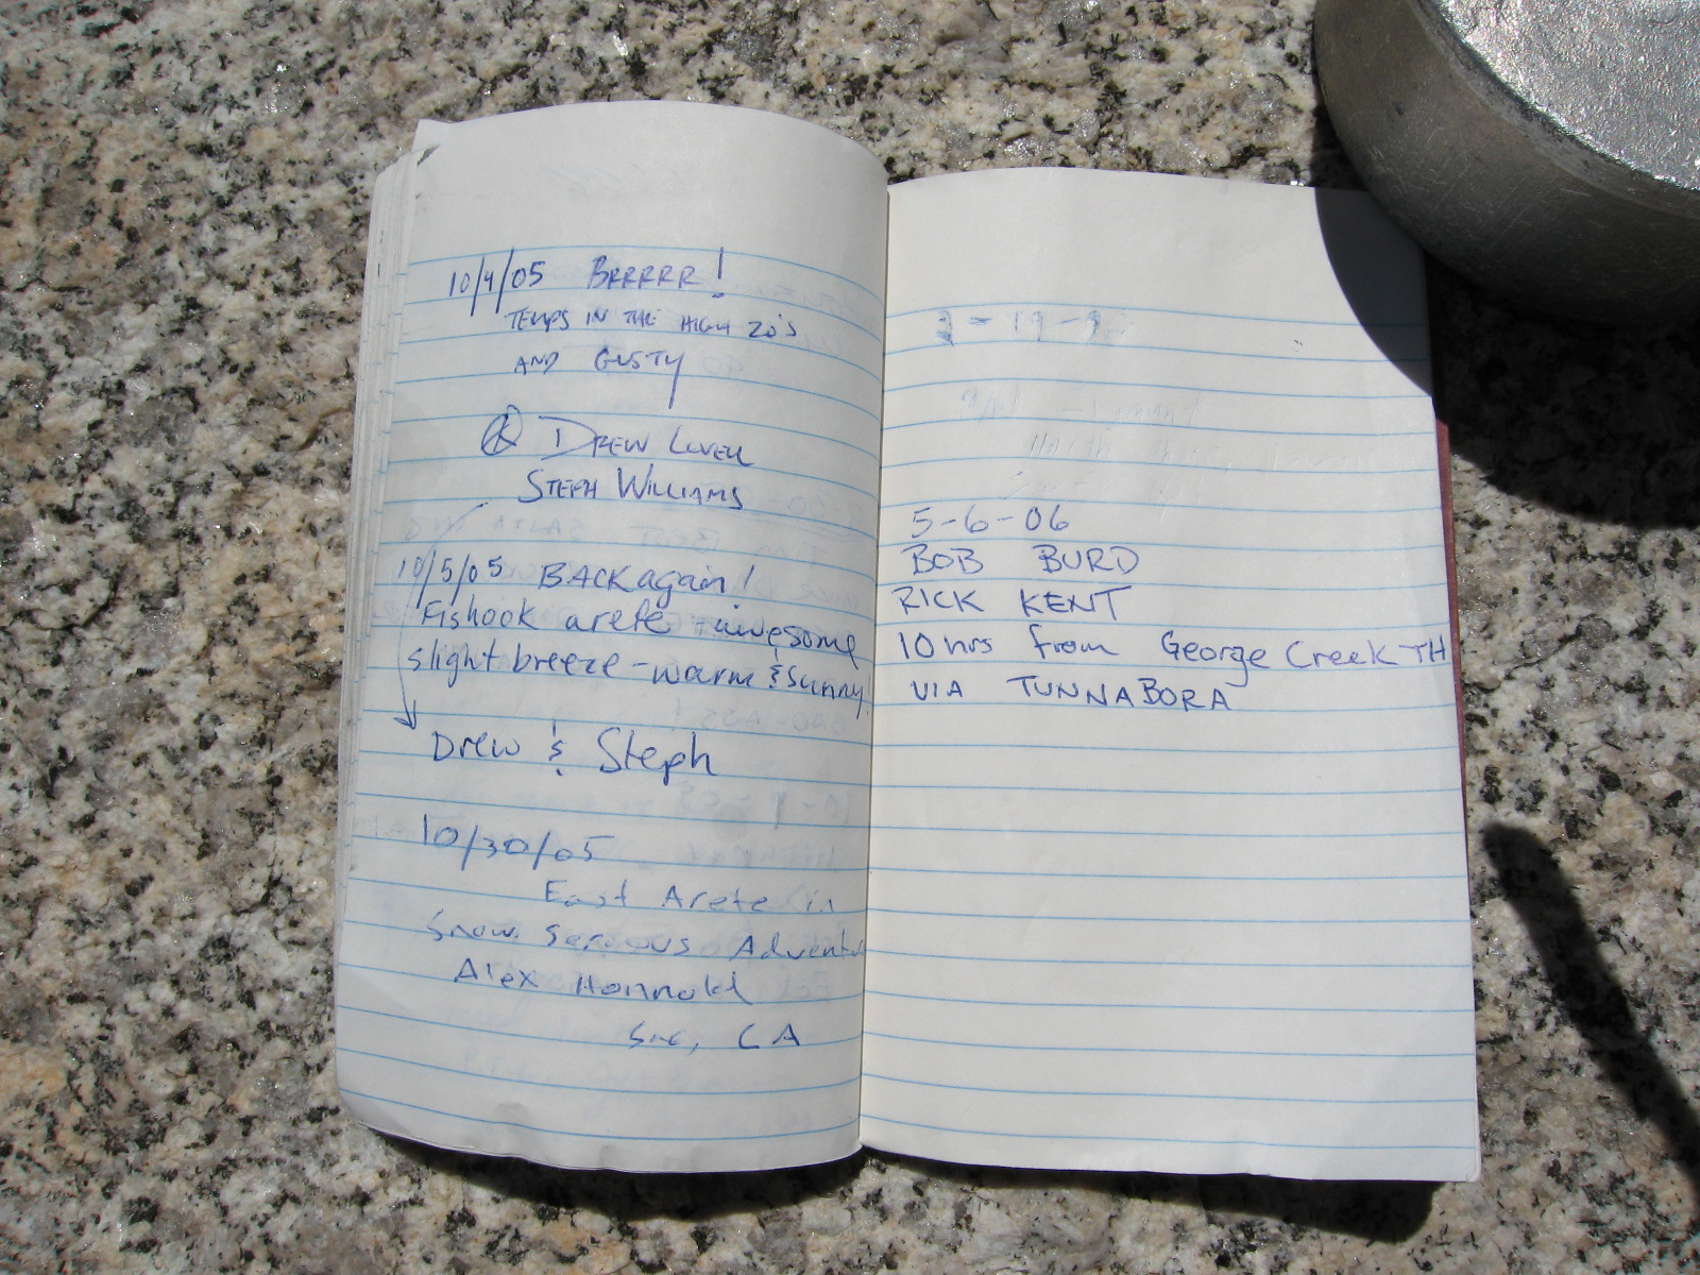 10/4/05 BRRRRR!
TEMPS IN THE HIGH 20's
AND GUSTY
DREW LOVELL
STEPH WILLIAMS
10/5/05 BACK again!
Fishook arete - awesome
slight breeze - warm & sunny!
Drew & Steph
10/30/05
East Arete in
Snow. Serious Adventu
Alex Honnold
Sac, CA
- 19 - 9
5-6-06
BOB BURD
RICK KENT
10 hrs from George Creek TH
VIA TUNNABORA